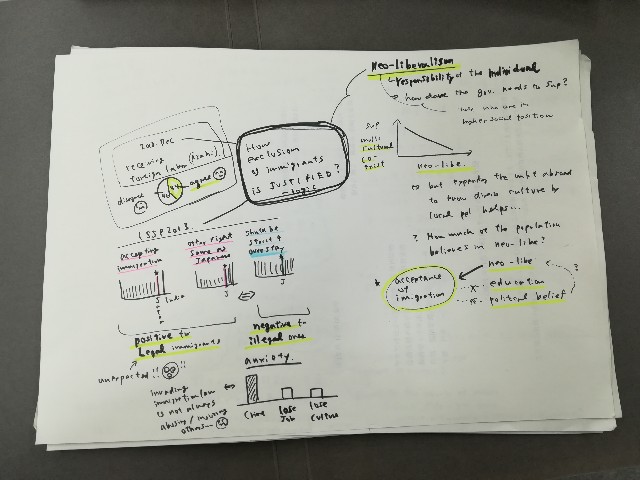 Neo-liberalism
responsibility of the individual
how about the gov. needs to sup?
higher social position
How
exclusion
of immigrants
is JUSTIFIED?
~ logic
2018. Dec
receiving
foreign labor (Asahi)
disagree
agree
sup
multi
cultural
neo-libe.
but
abroad
to know diverse culture by
local ppl helps...
? How much of the population
believes in neo-libe?
neo-libe
acceptance
of
immigration
education
political belief
?
ISSP2013
accepting
immigration
other right
same as
Japanese
should be
strict to
overstay
J
J
positive to
Legal immigrants
negative to
illegal ones
unexpected!!
!!
anxiety.
invading
immigration law
is not always
abusing/injuring
others
Crime
lose
Job
lose
Culture